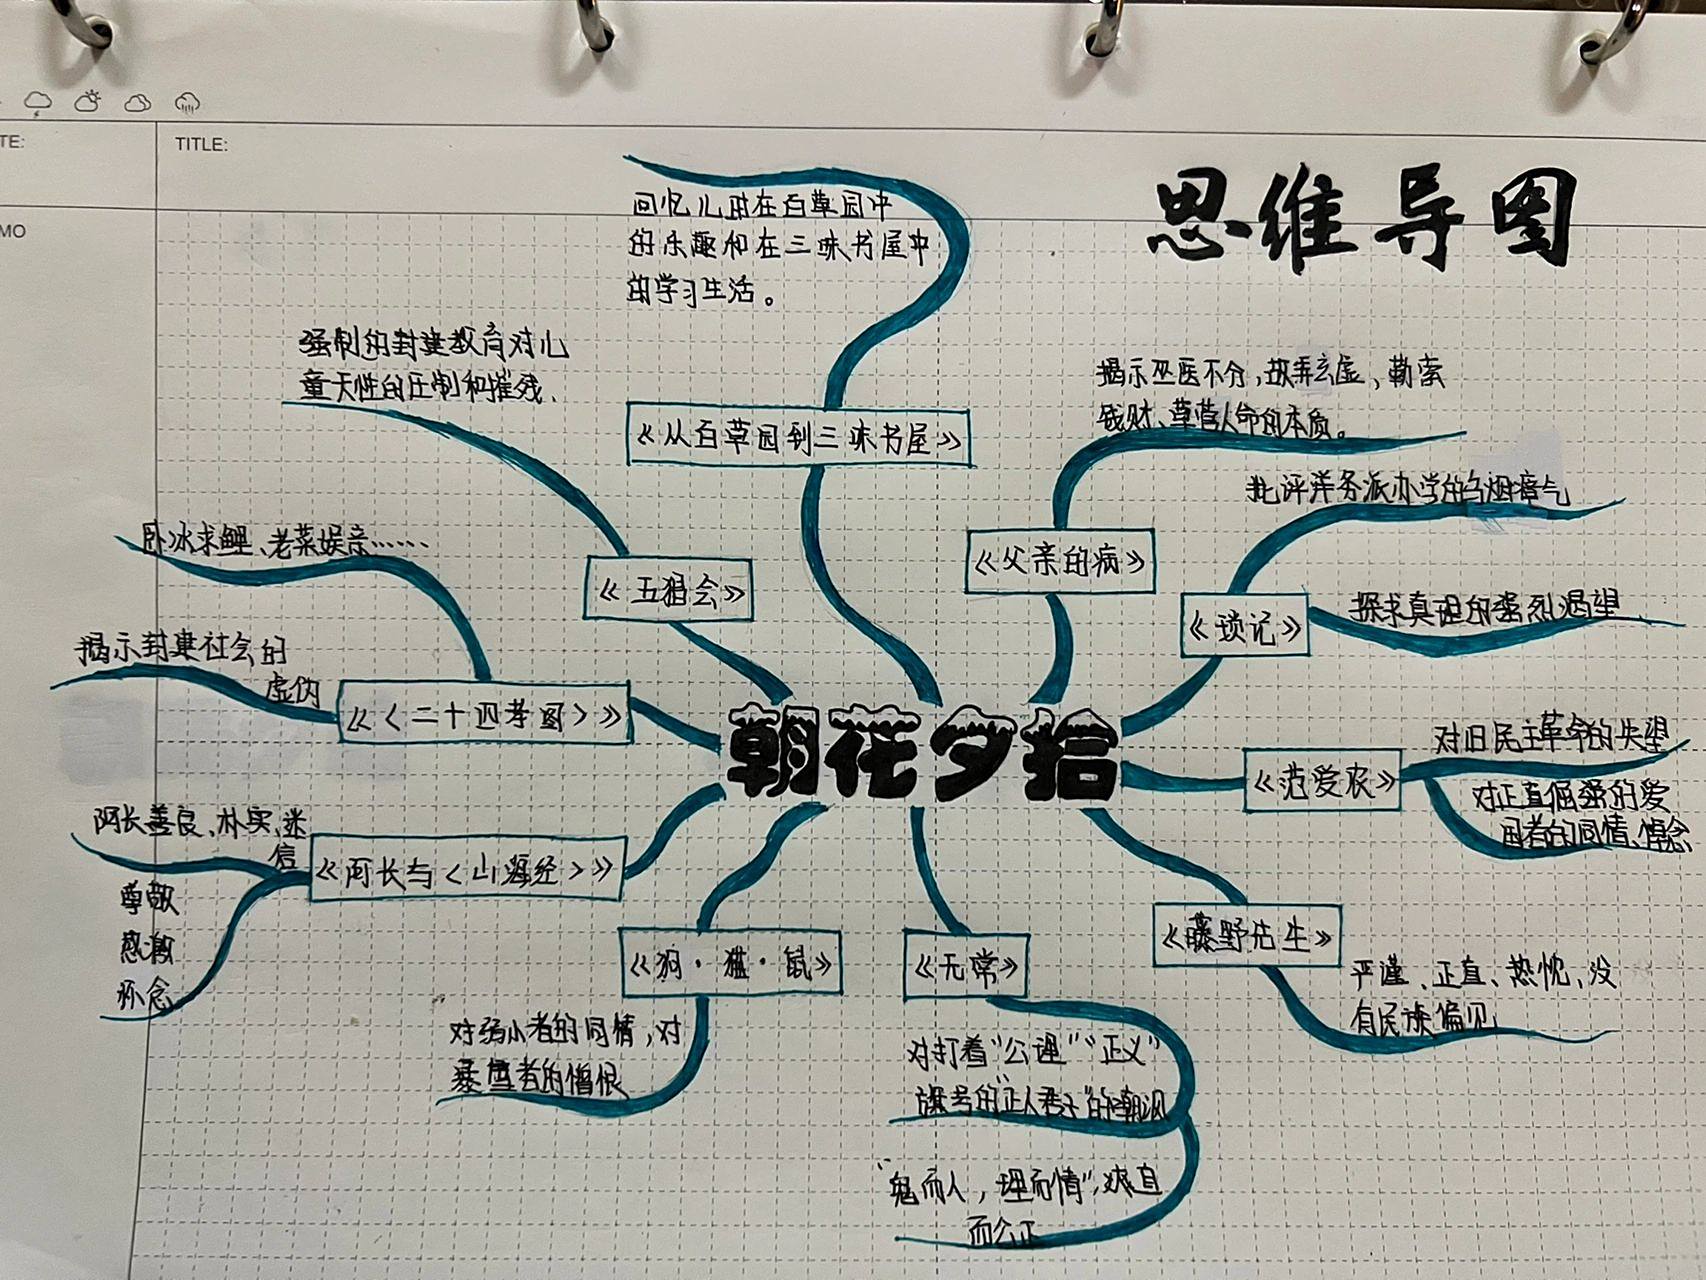 TE:
TITLE:
MO
思维导图
回忆儿时在百草园中
的乐趣和在三味书屋中
的学习生活。
《从百草园到三味书屋》
强制的封建教育对儿
童天性的压制和摧残.
《五猖会》
揭示巫医不分,故弄玄虚、勒索
钱财、草菅人命的本质。
《父亲的病》
批评洋务派办学的乌烟瘴气
《琐记》
探求真理的强烈渴望
卧冰求鲤、老莱娱亲……
揭示封建社会的
虚伪
《〈二十四孝图〉》
朝花夕拾
对旧民主革命的失望
《范爱农》
对正直倔强的爱
国者的同情、悼念
阿长善良、朴实、迷
信
《阿长与〈山海经〉》
尊敬
感激
怀念
《狗·猫·鼠》
对弱小者的同情,对
暴虐者的憎恨
《无常》
对打着"公理""正义"
旗号的"正人君子"的嘲讽
"鬼而人,理而情",爽直
而公正
《藤野先生》
严谨、正直、热忱、没
有民族偏见